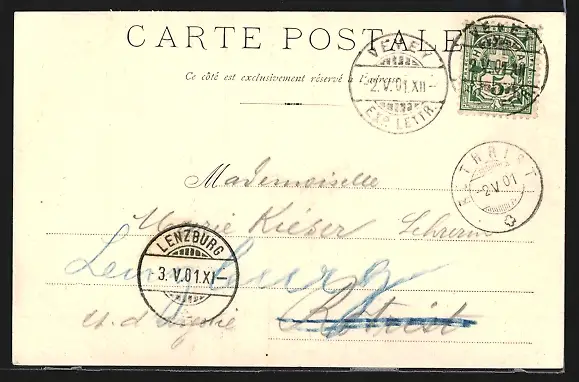 CARTE POSTALE
Ce côté est exclusivement réservé à l'adresse.
VEVEY
2.V.01.XII-
EXP. LETTR.
VEVEY
2.V.01
5
2.V.01
Mademoiselle
Marie Kieser
LENZBURG
3.V.01.XI-
Lenzburg
Ct. d'Argovie